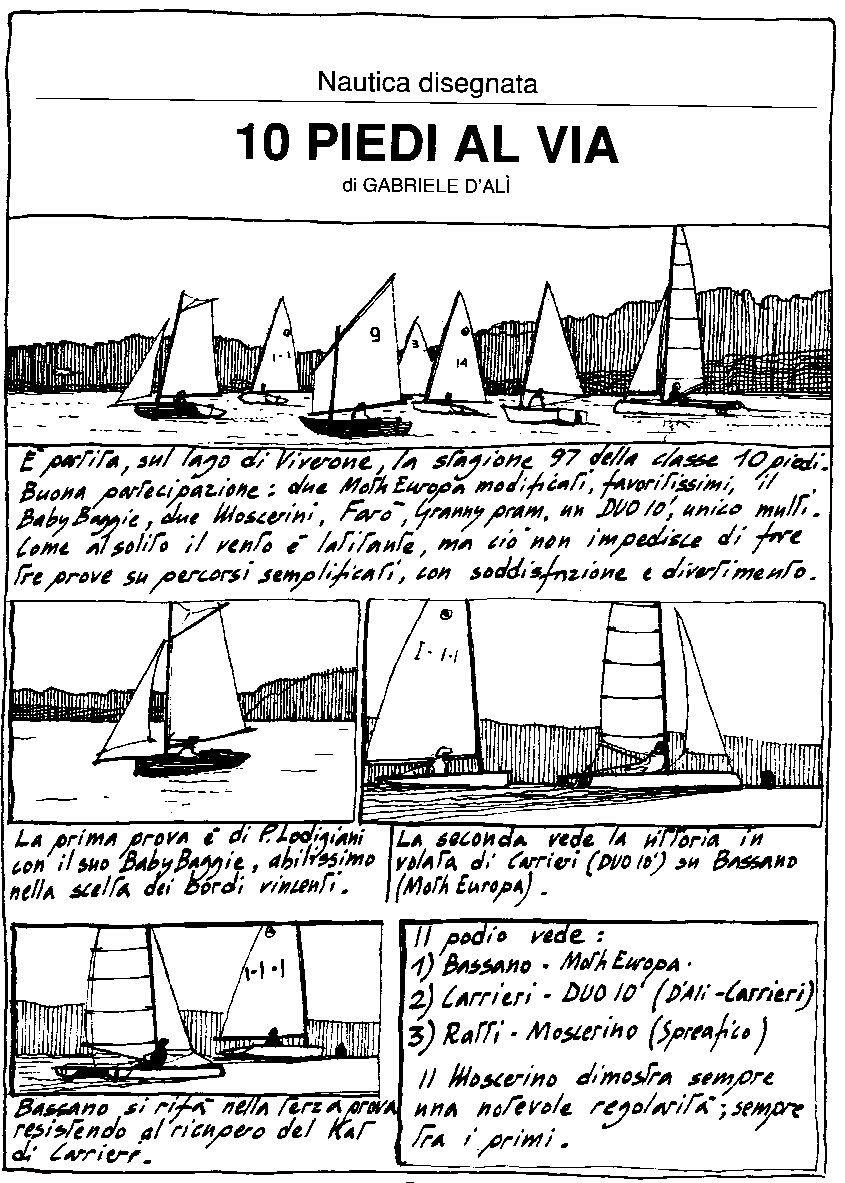 Nautica disegnata
10 PIEDI AL VIA
di GABRIELE D'ALÌ
1-1
9
3
14
È partita, sul lago di Viverone, la stagione 97 della classe 10 piedi.
Buona partecipazione: due Moth Europa modificati, favoritissimi, il
Baby Baggie, due Moscerini, Farò, Granny pram, un DUO 10', unico multi.
Come al solito il vento è latitante, ma ciò non impedisce di fare
tre prove su percorsi semplificati, con soddisfazione e divertimento.
I-1-1
La prima prova è di P. Lodigiani
con il suo Baby Baggie, abilissimo
nella scelta dei bordi vincenti.
La seconda vede la vittoria in
volata di Carrieri (DUO 10') su Bassano
(Moth Europa).
1-1-1
Bassano si rifà nella terza prova
resistendo al ricupero del Kat
di Carrieri.
Il podio vede:
1) Bassano - Moth Europa.
2) Carrieri - DUO 10' (D'Alì - Carrieri)
3) Ratti - Moscerino (Spreafico)
Il Moscerino dimostra sempre
una notevole regolarità; sempre
tra i primi.